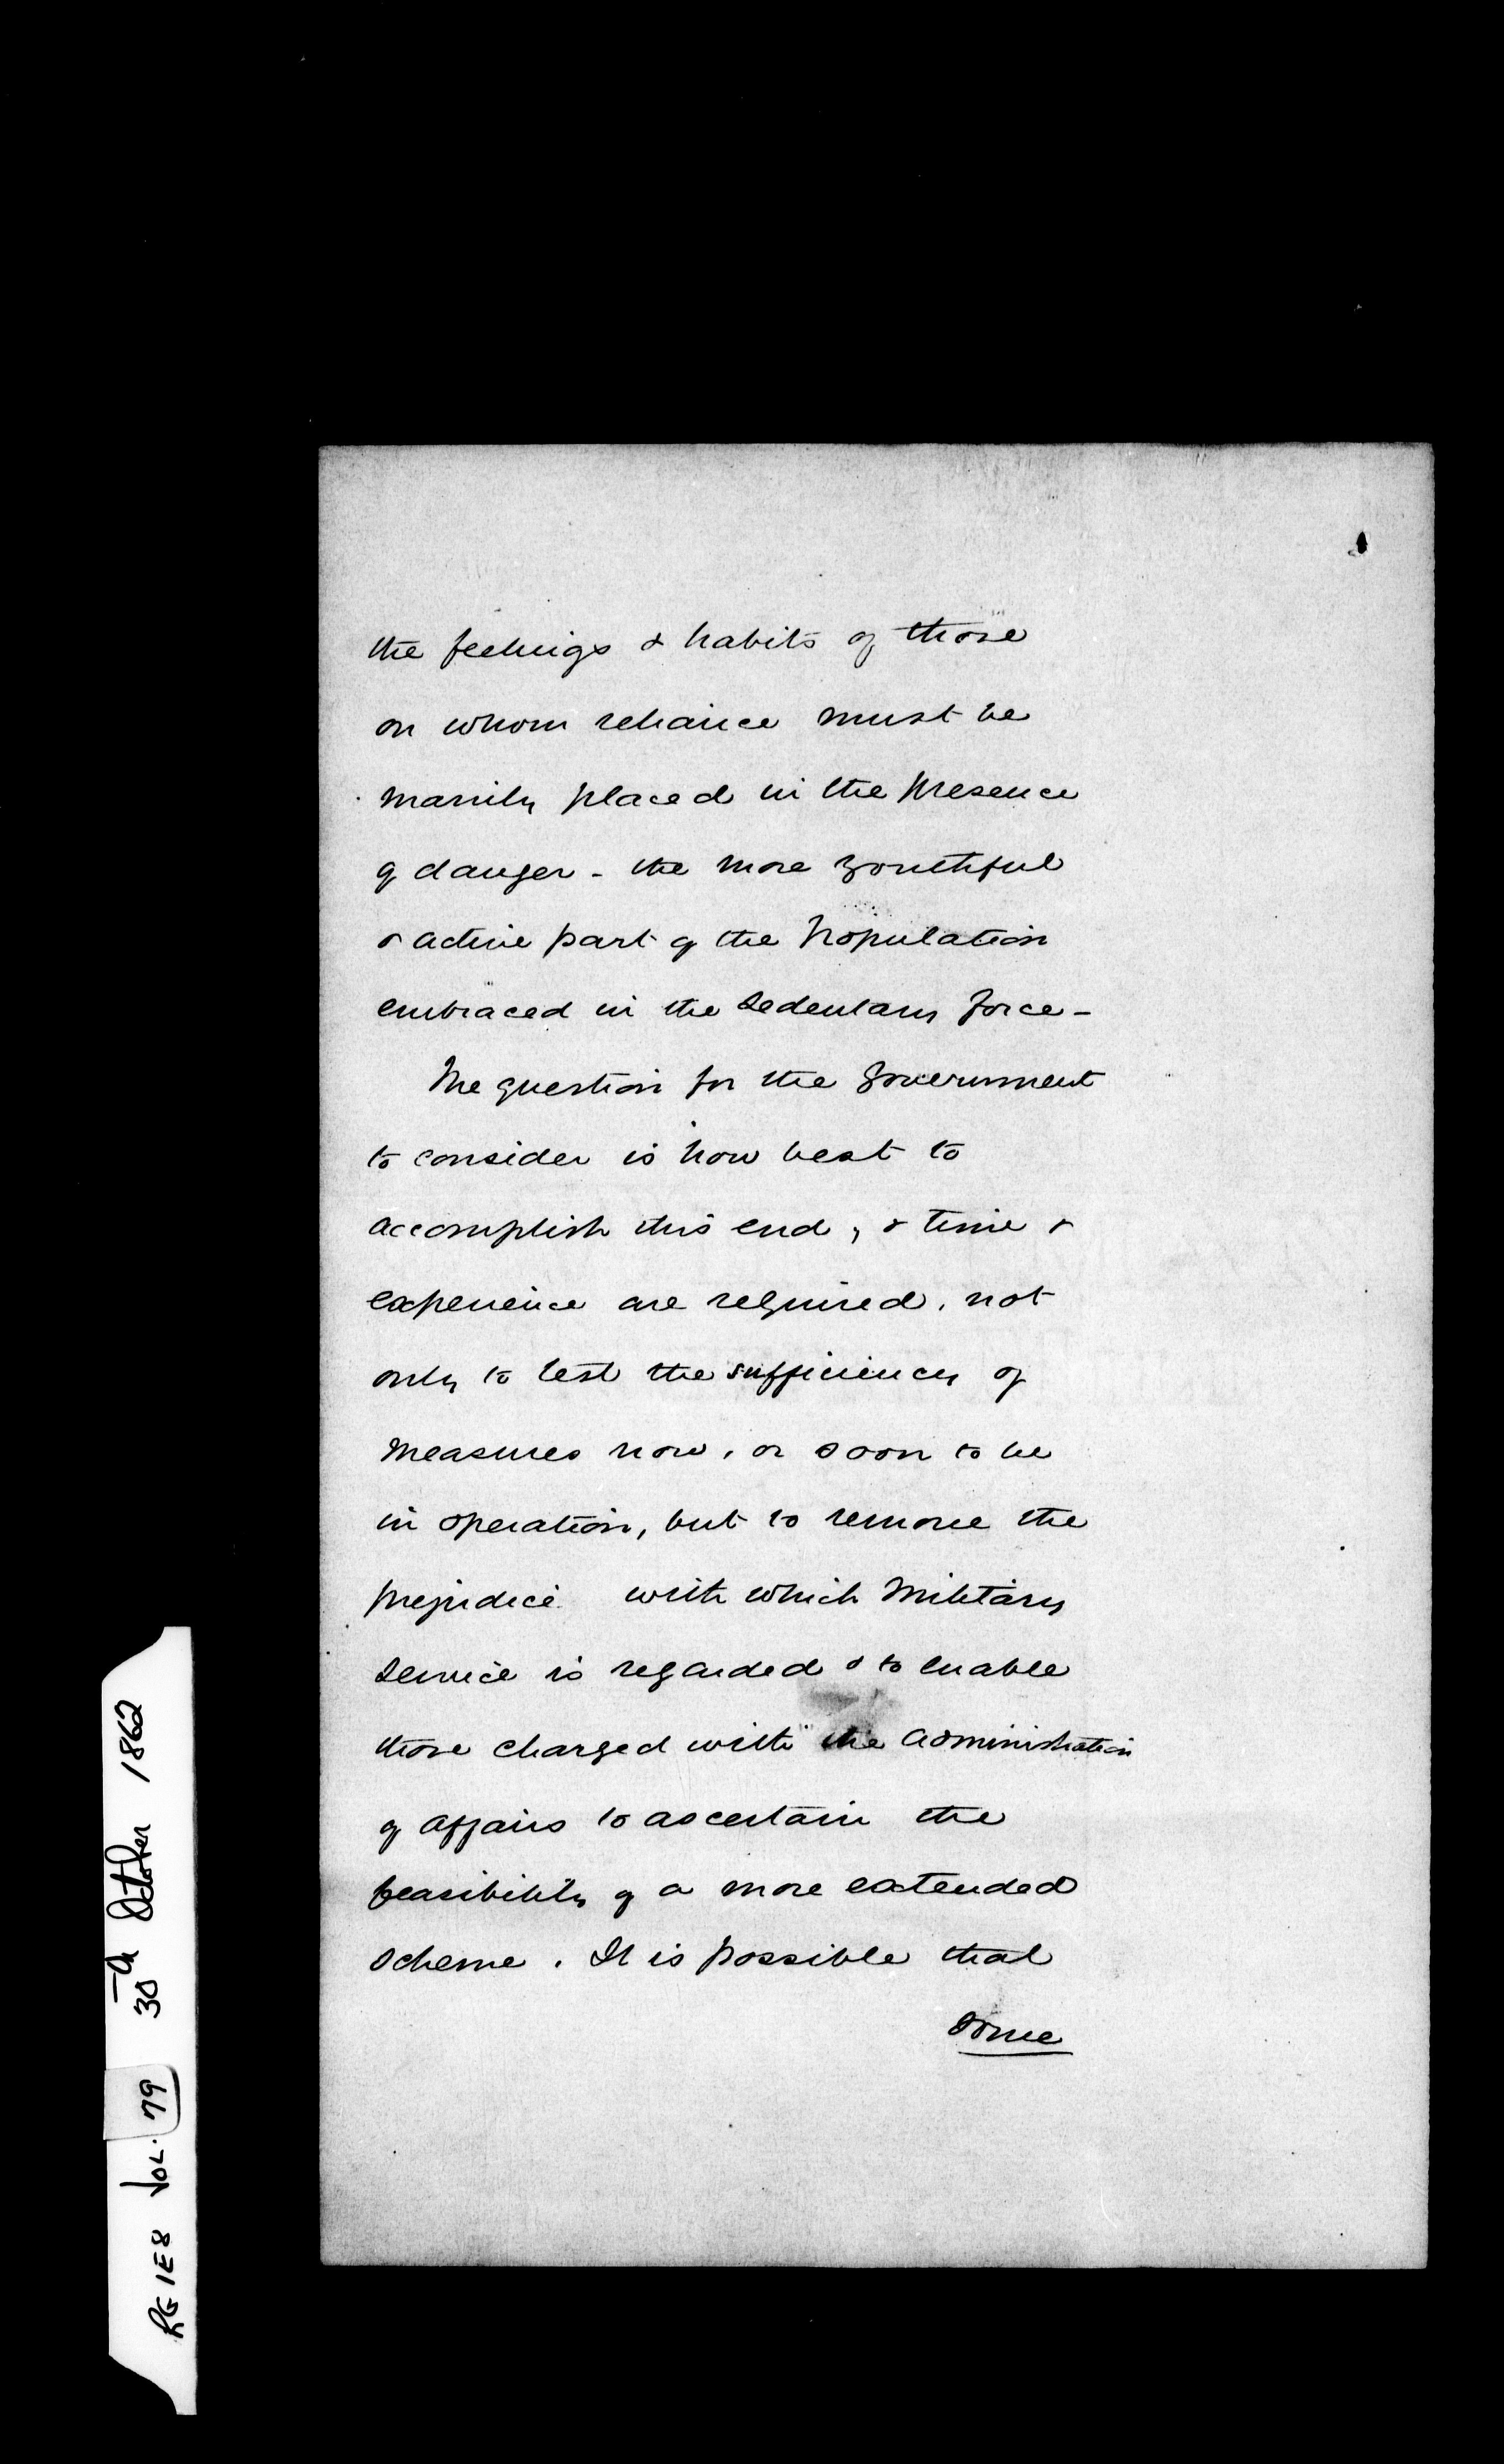 the feelings & habits of those
on whom reliance must be
mainly placed in the presence
of danger - the more youthful
& active part of the population
embraced in the Sedentary force -
The question for the Government
to consider is how best to
accomplish this end, & time &
experience are required, not
only to test the sufficiency of
measures now, or soon to be
in operation, but to remove the
prejudice with which Military
Service is regarded & to enable
those charged with the administration
of affairs to ascertain the
feasibility of a more extended
scheme. It is possible that
some
RG 1E8 VOL. 79 30 October 1862